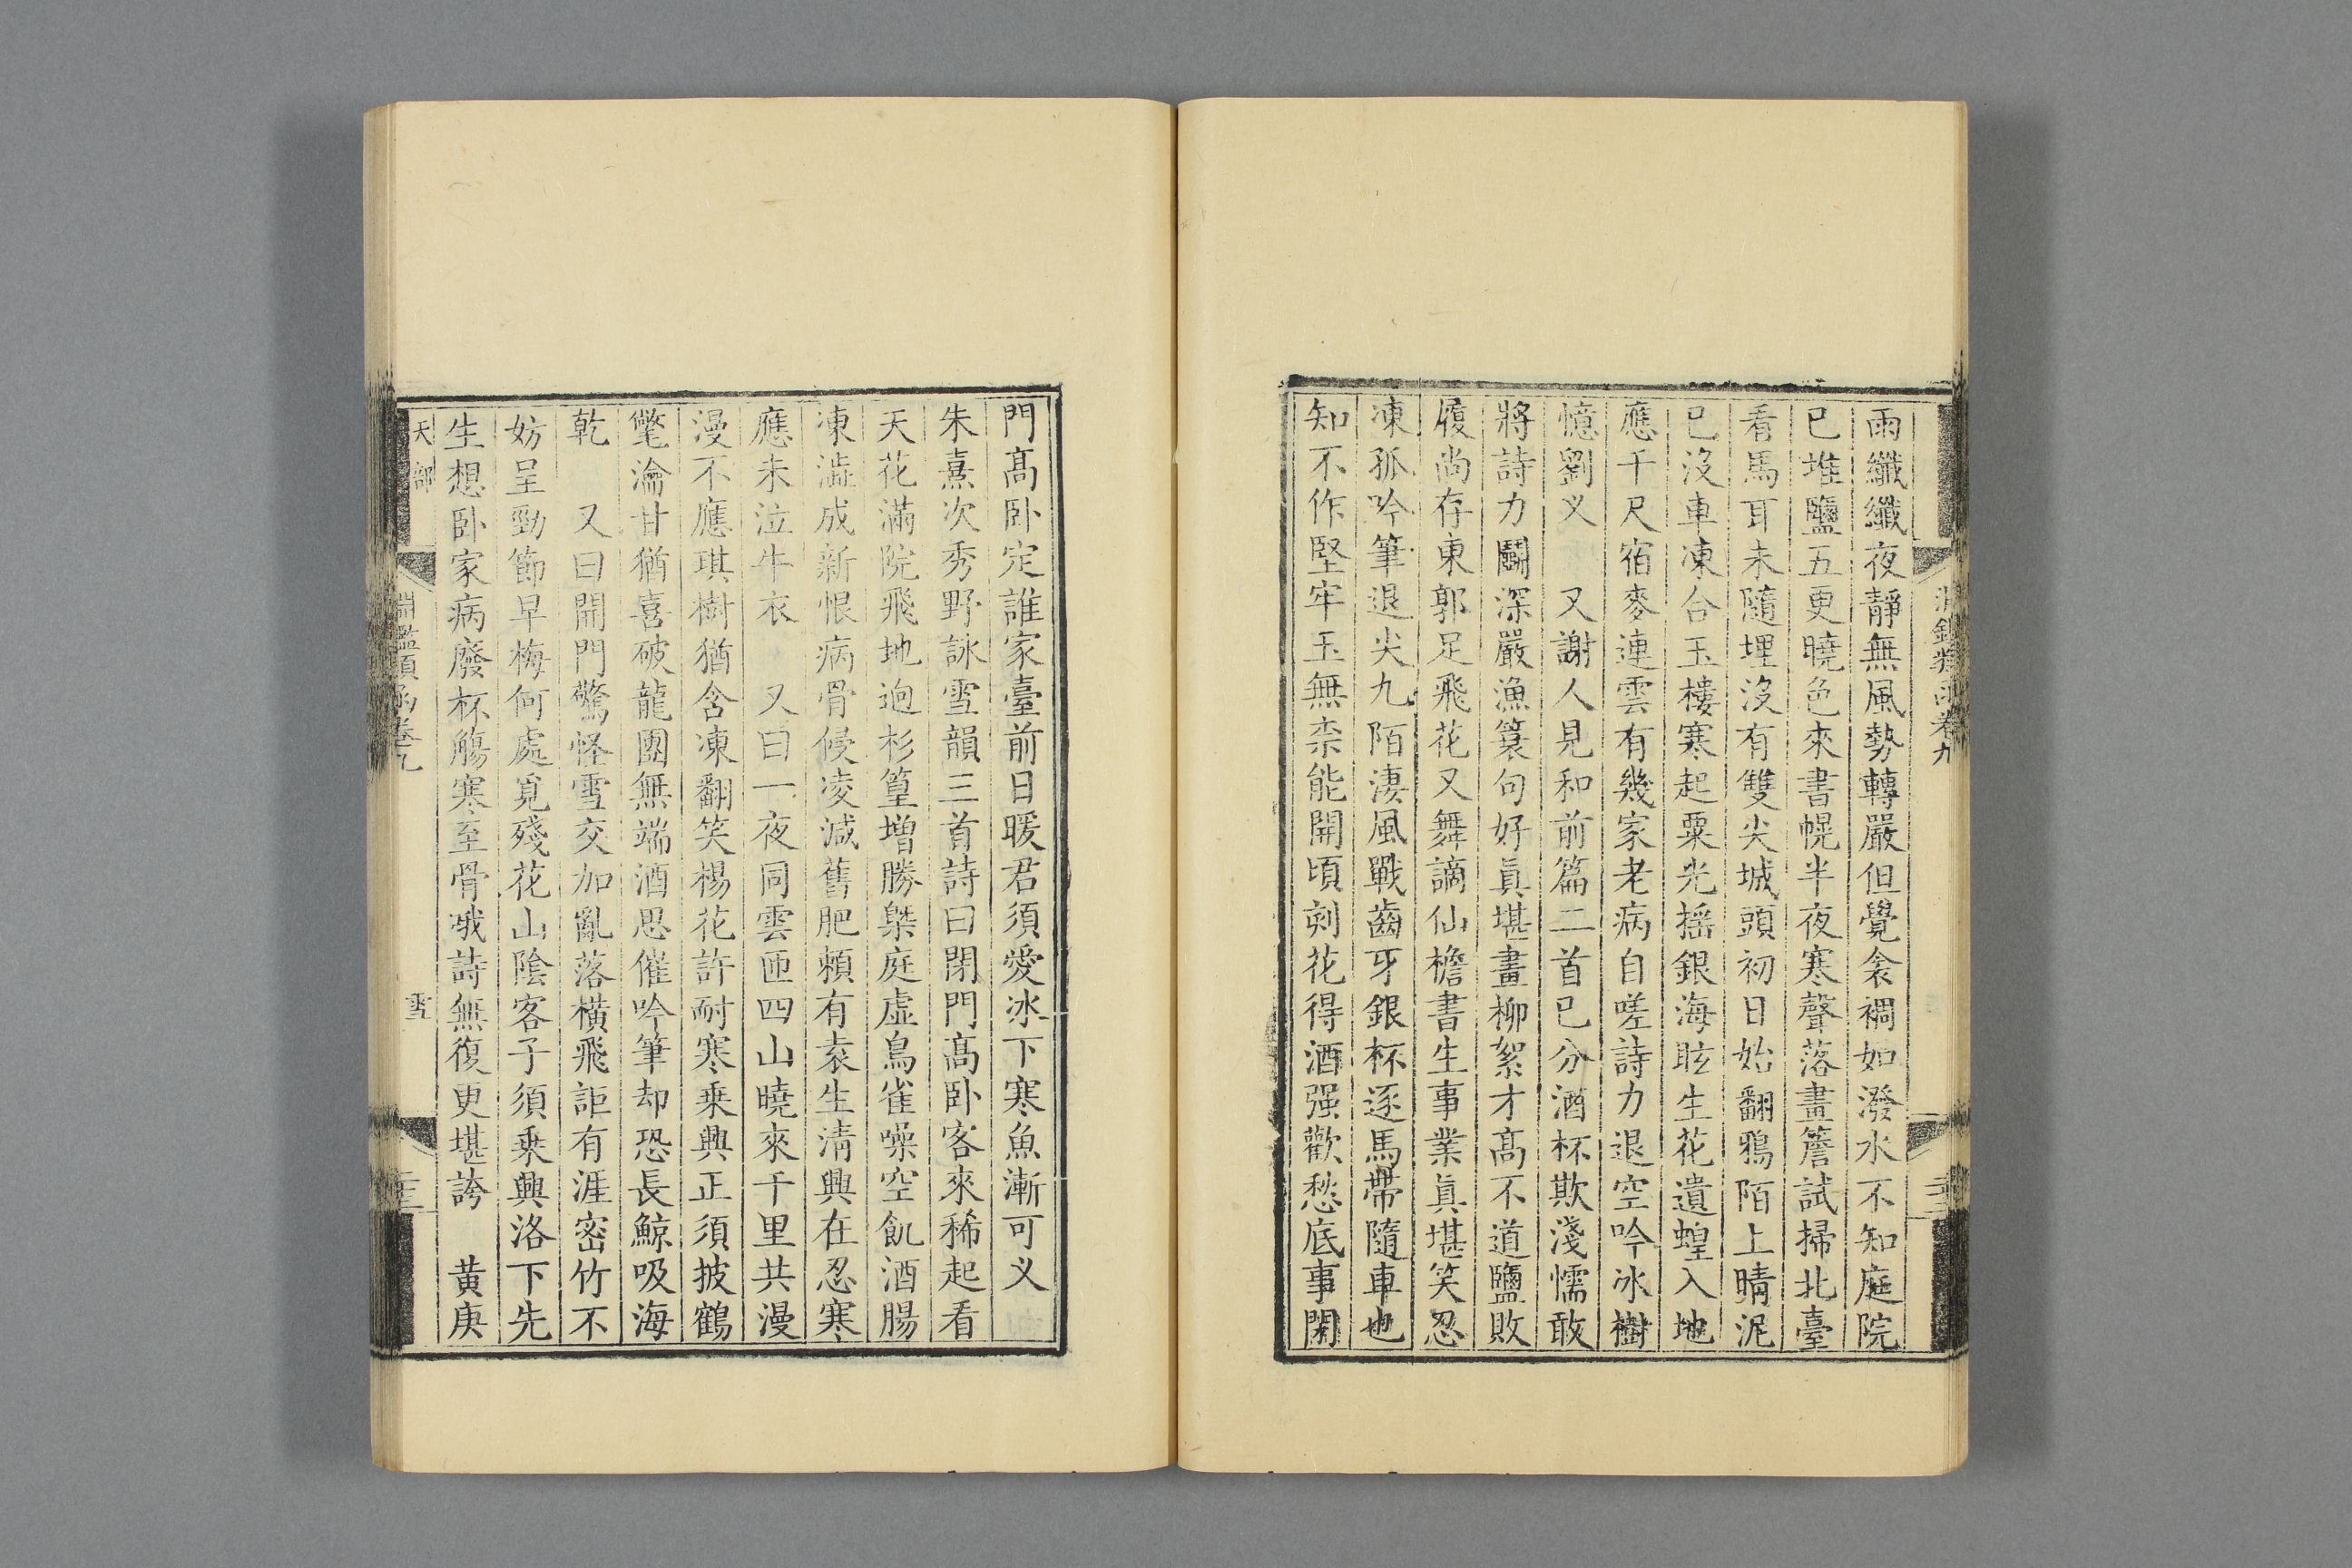 雨纖纖夜靜無風勢轉嚴但覺衾裯如潑水不知庭院
已堆鹽五更曉色來書幌半夜寒聲落畫簷試掃北臺
看馬耳未隨埋沒有雙尖城頭初日始翻鴉陌上晴泥
已沒車凍合玉樓寒起粟光搖銀海眩生花遺蝗入地
應千尺宿麥連雲有幾家老病自嗟詩力退空吟冰樹
憶劉乂 又謝人見和前篇二首已分酒杯欺淺懦敢
將詩力鬬深嚴漁簑句好真堪畫柳絮才高不道鹽敗
履尚存東郭足飛花又舞謫仙檐書生事業真堪笑忍
凍孤吟筆退尖九陌淒風戰齒牙銀杯逐馬帶隨車也
知不作堅牢玉無柰能開頃刻花得酒强歡愁底事閑
門高卧定誰家臺前日暖君須愛冰下寒魚漸可乂
朱熹次秀野詠雪韻三首詩曰閉門高卧客來稀起看
天花滿院飛地逈杉篁增勝槩庭虛鳥雀噪空飢酒腸
凍澁成新恨病骨侵凌減舊肥賴有袁生清興在忍寒
應未泣牛衣 又曰一夜同雲匝四山曉來千里共漫
漫不應琪樹猶含凍翻笑楊花許耐寒乗興正須披鶴
氅瀹甘猶喜破龍團無端酒思催吟筆却恐長鯨吸海
乾 又曰開門驚怪雪交加亂落橫飛詎有涯密竹不
妨呈勁節早梅何處覓殘花山陰客子須乗興洛下先
生想卧家病廢杯觴寒至骨哦詩無復更堪誇 黄庚
天部
淵鑑類函卷九
雪五